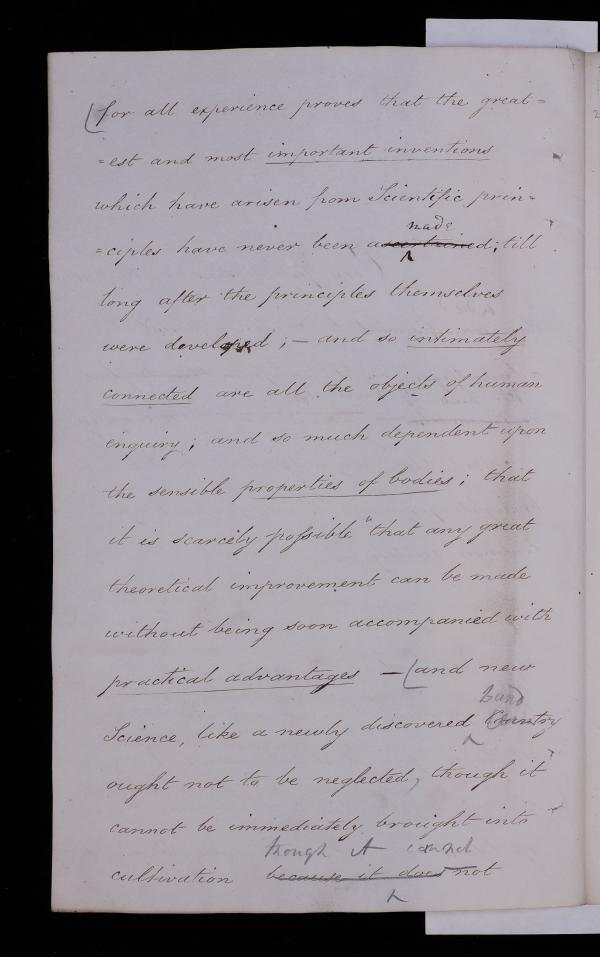 for all experience proves that the great=
=est and most important inventions
which have arisen from Scientific prin=
made
=ciples have never been ascertained; till
long after the principles themselves
were developed ; — and so intimately
connected are all the objects of human
enquiry ; and so much dependent upon
the sensible properties of bodies ; that
it is scarcely possible "that any great
theoretical improvement can be made
without being soon accompanied with
practical advantages — (and new
Land
Science, like a newly discovered Country
ought not to be neglected, though it
cannot be immediately brought into
though it cannot
cultivation because it does not